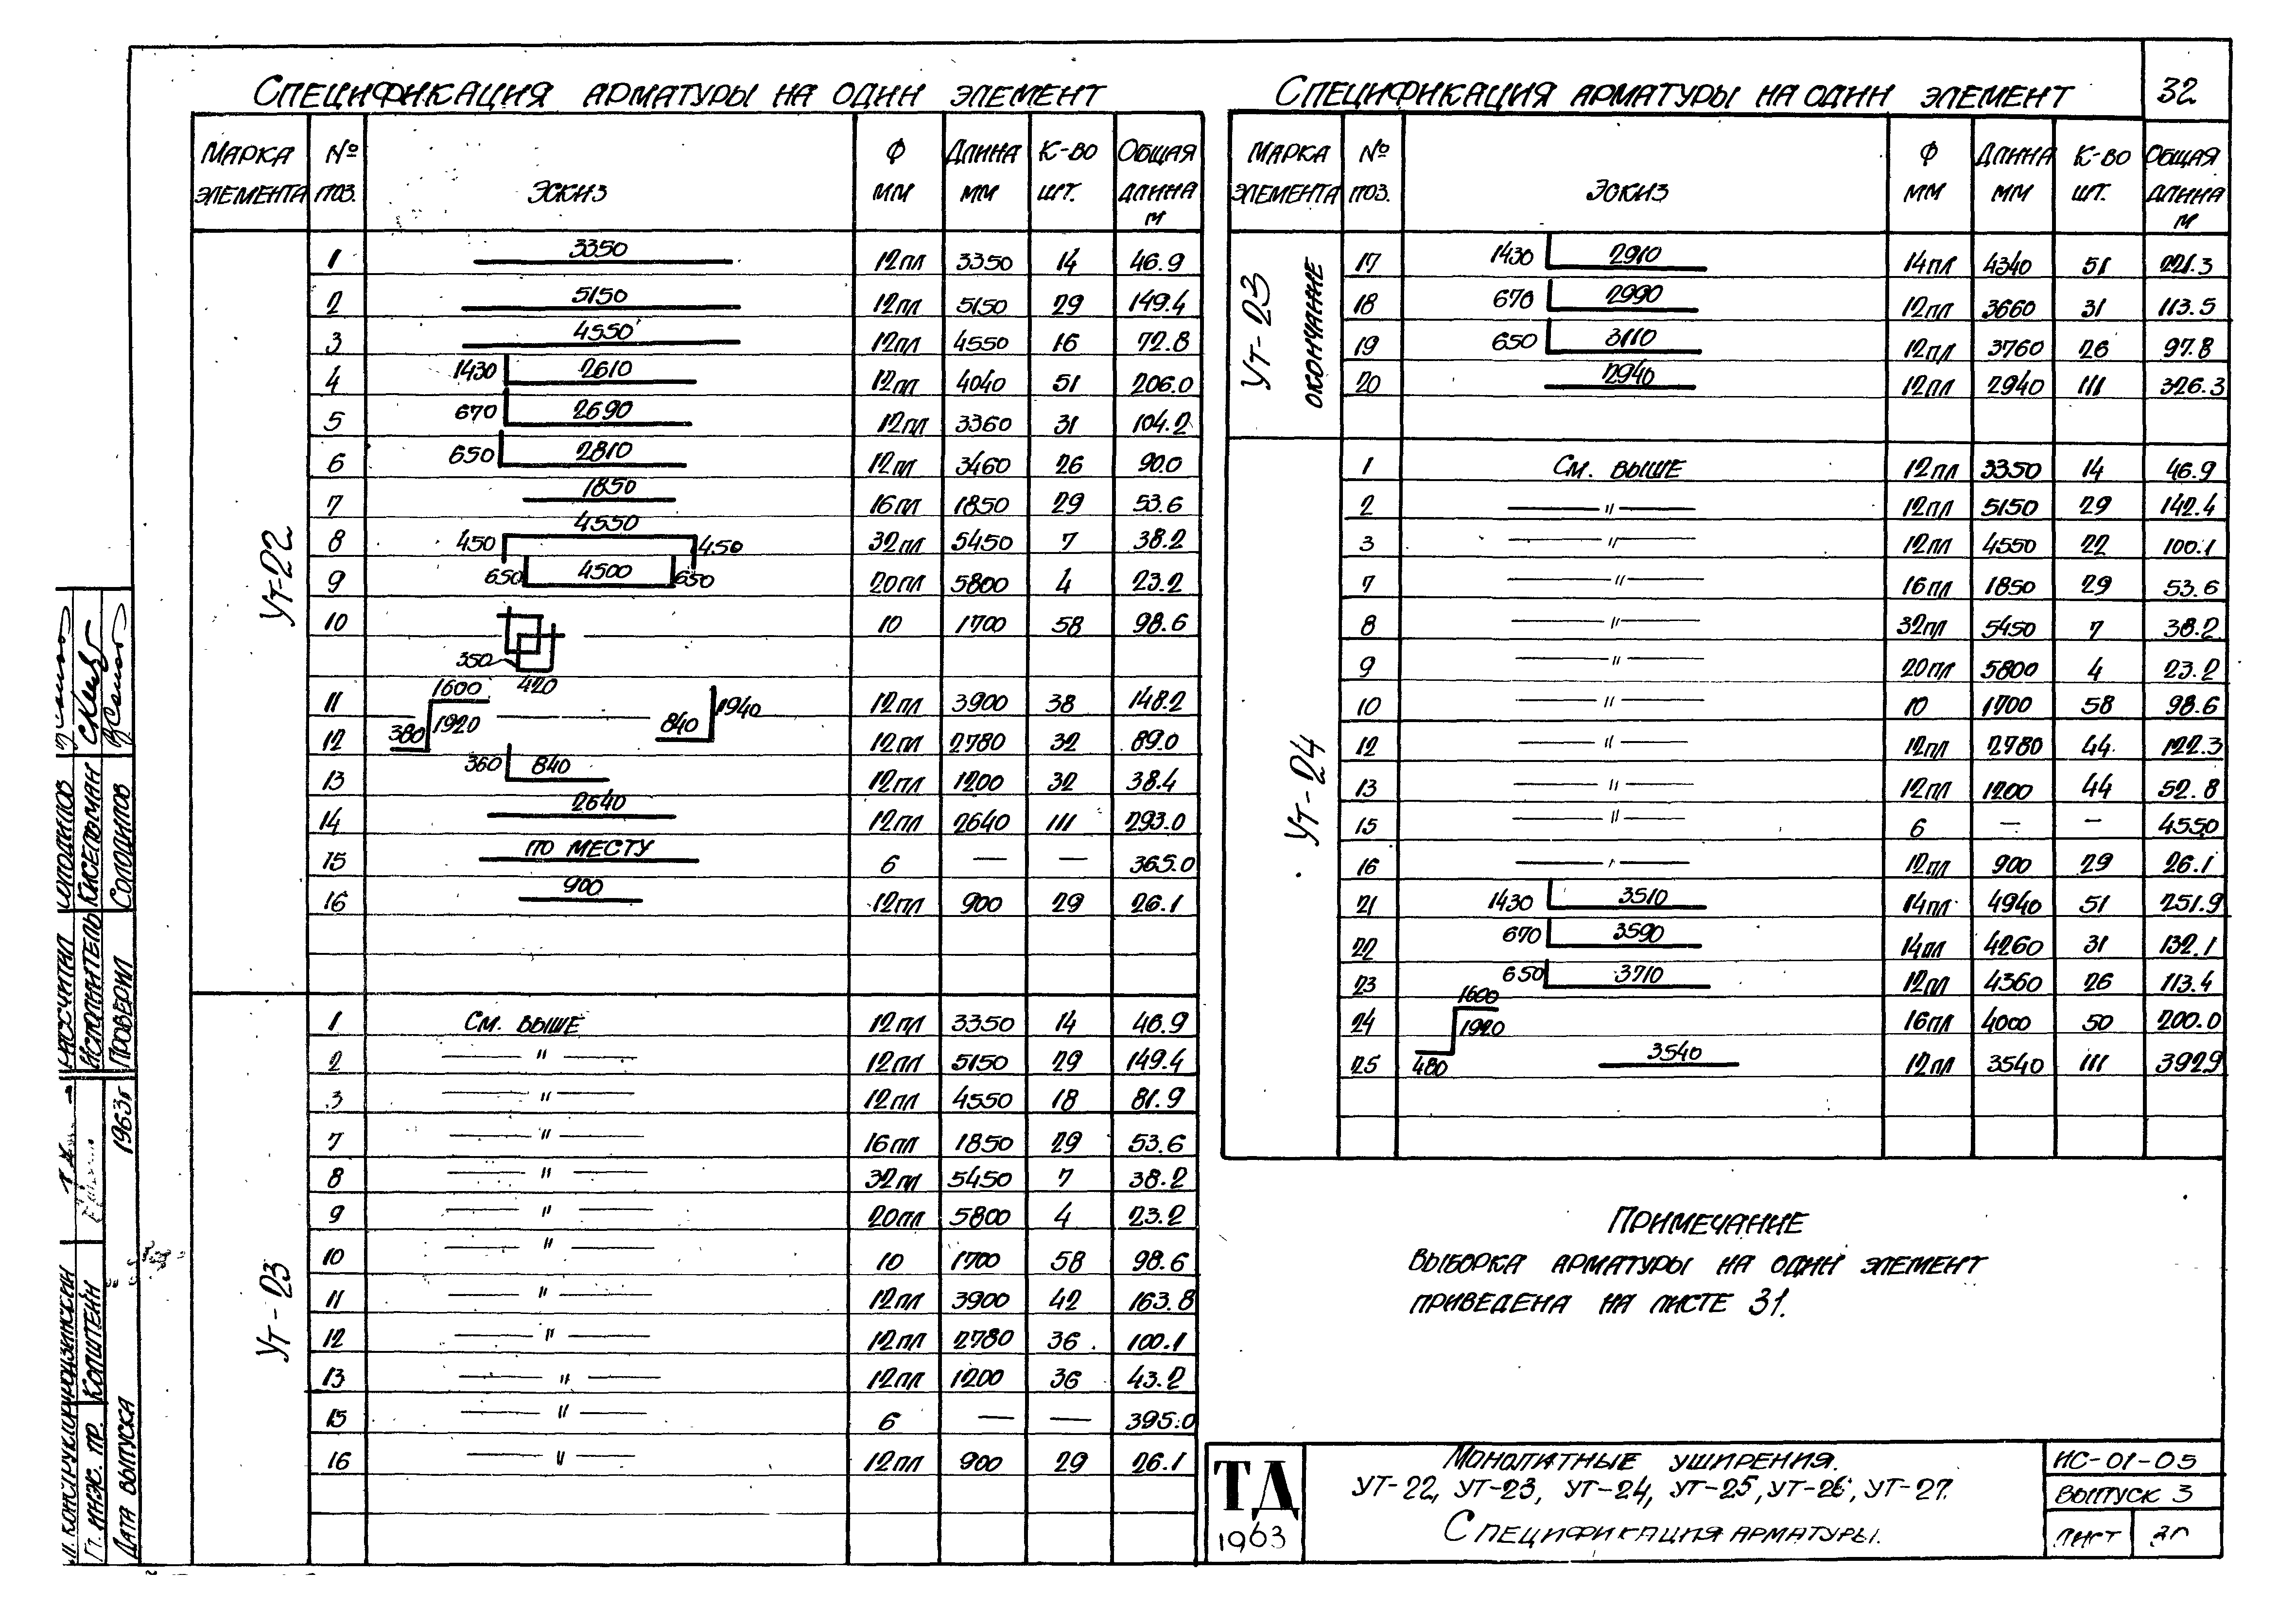 32
Спецификация арматуры на один элемент
Марка элемента № поз. Эскиз Ф мм Длина мм К-во шт. Общая длина м
Ут-22
1 3350 12пл 3350 14 46.9
2 5150 12пл 5150 29 149.4
3 4550 12пл 4550 16 72.8
4 1430 2610 12пл 4040 51 206.0
5 670 2690 12пл 3360 31 104.2
6 650 2810 12пл 3460 26 90.0
7 1850 16пл 1850 29 53.6
8 450 4550 450 32пл 5450 7 38.2
9 650 4500 650 20пл 5800 4 23.2
10 350 420 10 1700 58 98.6
11 1600 1920 380 12пл 3900 38 148.2
12 840 1940 12пл 2780 32 89.0
13 360 840 12пл 1200 32 38.4
14 2640 12пл 2640 111 293.0
15 по месту 6 — — 365.0
16 900 12пл 900 29 26.1
Ут-23
1 См. выше 12пл 3350 14 46.9
2 — " — 12пл 5150 29 149.4
3 — " — 12пл 4550 18 81.9
7 — " — 16пл 1850 29 53.6
8 — " — 32пл 5450 7 38.2
9 — " — 20пл 5800 4 23.2
10 — " — 10 1700 58 98.6
11 — " — 12пл 3900 42 163.8
12 — " — 12пл 2780 36 100.1
13 — " — 12пл 1200 36 43.2
15 — " — 6 — — 395.0
16 — " — 12пл 900 29 26.1
Спецификация арматуры на один элемент
Марка элемента № поз. Эскиз Ф мм Длина мм К-во шт. Общая длина м
Ут-23 окончание
17 1430 2910 14пл 4340 51 221.3
18 670 2990 12пл 3660 31 113.5
19 650 3110 12пл 3760 26 97.8
20 2940 12пл 2940 111 326.3
Ут-24
1 См. выше 12пл 3350 14 46.9
2 — " — 12пл 5150 29 142.4
3 — " — 12пл 4550 22 100.1
7 — " — 16пл 1850 29 53.6
8 — " — 32пл 5450 7 38.2
9 — " — 20пл 5800 4 23.2
10 — " — 10 1700 58 98.6
12 — " — 12пл 2780 44 122.3
13 — " — 12пл 1200 44 52.8
15 — " — 6 — — 455.0
16 — " — 12пл 900 29 26.1
21 1430 3510 14пл 4940 51 251.9
22 670 3590 14пл 4260 31 132.1
23 650 3710 12пл 4360 26 113.4
24 1600 1920 480 16пл 4000 50 200.0
25 3540 12пл 3540 111 392.9
Примечание
Выборка арматуры на один элемент
приведена на листе 31.
ТД
1963
Монолитные уширения.
УТ-22, УТ-23, УТ-24, УТ-25, УТ-26, УТ-27.
Спецификация арматуры.
ИС-01-05
Выпуск 3
Лист
Рассчитал Солодилов
Исполнитель Кисельман
Проверил Солодилов
Гл. инж. пр. Копштейн
Дата выпуска 1963г